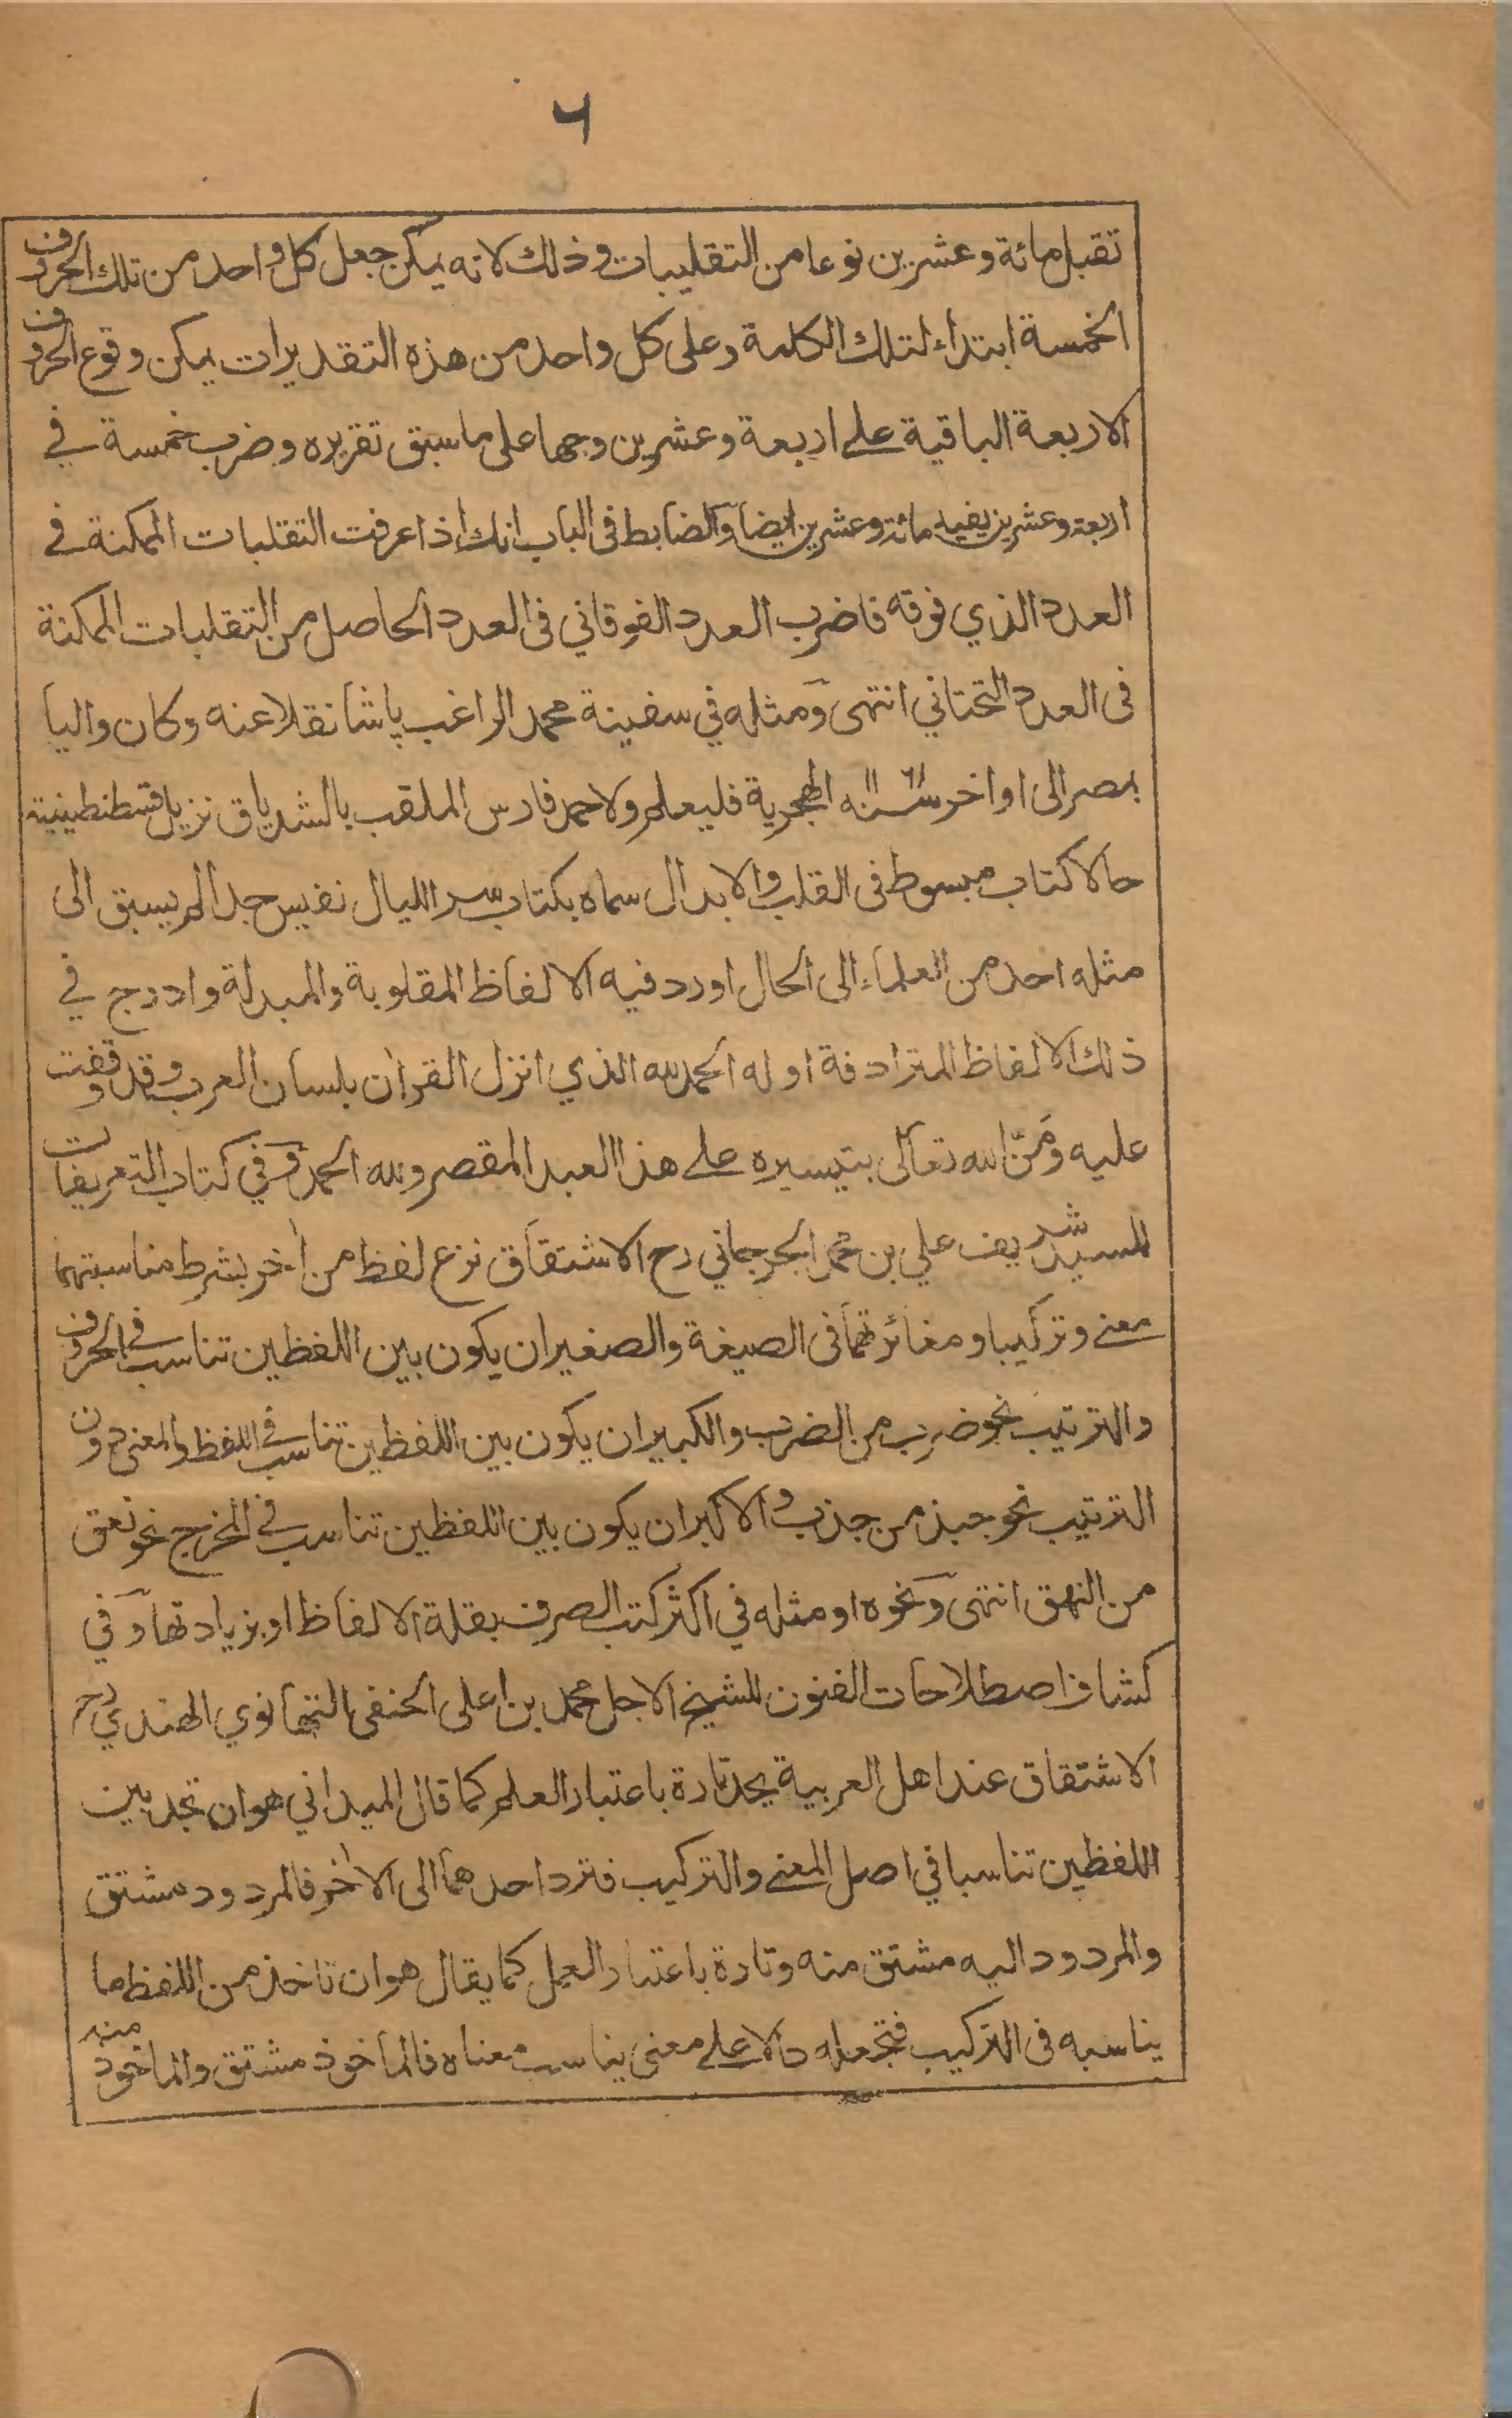 ٦
تقبل مائة وعشرين نوعا من التقليبات وذلك لانه يمكن جعل كل واحد من تلك الحروف
الخمسة ابتداء لتلك الكلمة وعلى كل واحد من هذه التقديرات يمكن وقوع الحروف
الاربعة الباقية على اربعة وعشرين وجها على ما سبق تقريره وضرب خمسة في
اربعة وعشرين يفيد مائة وعشرين ايضا والضابط فى الباب انك اذا عرفت التقلبات الممكنة في
العدد الذي فوقه فاضرب العدد الفوقاني فى العدد الحاصل من التقلبات الممكنة
فى العدد التحتاني انتهى ومثله في سفينة محمد الراغب پاشا نقلا عنه وكان واليا
بمصر الى اواخر سنه الهجرية فليعلم ولاحمد فارس الملقب بالشدياق نزيل قسطنطينية
حالا كتاب مبسوط فى القلب والابدال سماه بكتاب سر الليال نفيس جدا لم يسبق الى
مثله احد من العلماء الى الحال اورد فيه الالفاظ المقلوبة والمبدلة وادرج في
ذلك الالفاظ المترادفة اوله الحمد لله الذي انزل القرآن بلسان العرب وقد وقفت
عليه ومَنّ الله تعالى بتيسيره على هذا العبد المقصر ولله الحمد وفي كتاب التعريفات
للسيد شريف علي بن محمد الجرجاني رح الاشتقاق نزع لفظ من اٰخر بشرط مناسبتهما
معنى وتركيبا ومغائرتهما فى الصيغة والصغير ان يكون بين اللفظين تناسب في الحروف
والترتيب نحو ضرب من الضرب والكبير ان يكون بين اللفظين تناسب في اللفظ والمعنى دون
الترتيب نحو جبذ من جذب والاكبر ان يكون بين اللفظين تناسب في المخرج نحو نعق
من النهق انتهى ونحوه او مثله في اكثر كتب الصرف بقلة الالفاظ او بزيادتها وفي
كشاف اصطلاحات الفنون للشيخ الاجل محمد بن اعلى الحنفي التهانوي الهندي رح
الاشتقاق عند اهل العربية يحد تارة باعتبار العلم كما قال الميداني هو ان تجد بين
اللفظين تناسبا في اصل المعنى والتركيب فترد احدهما الى الاٰخر فالمردود مشتق
والمردود اليه مشتق منه وتارة باعتبار العمل كما يقال هو ان تاخذ من اللفظ ما
يناسبه فى التركيب فتجعله دالا على معنى يناسب معناه فالماخوذ مشتق والماخوذ منه